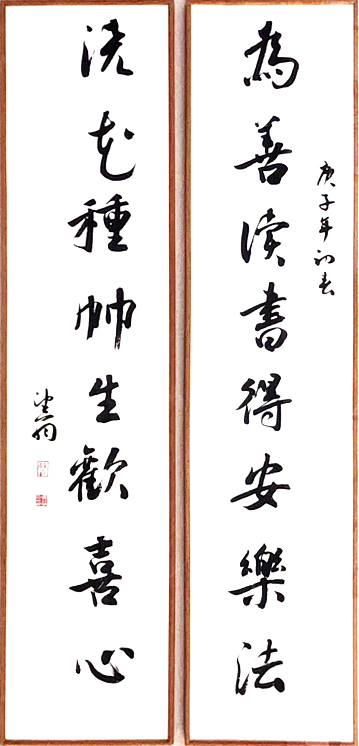 為善读書得安樂法
庚子年初春
浇花種竹生歡喜心